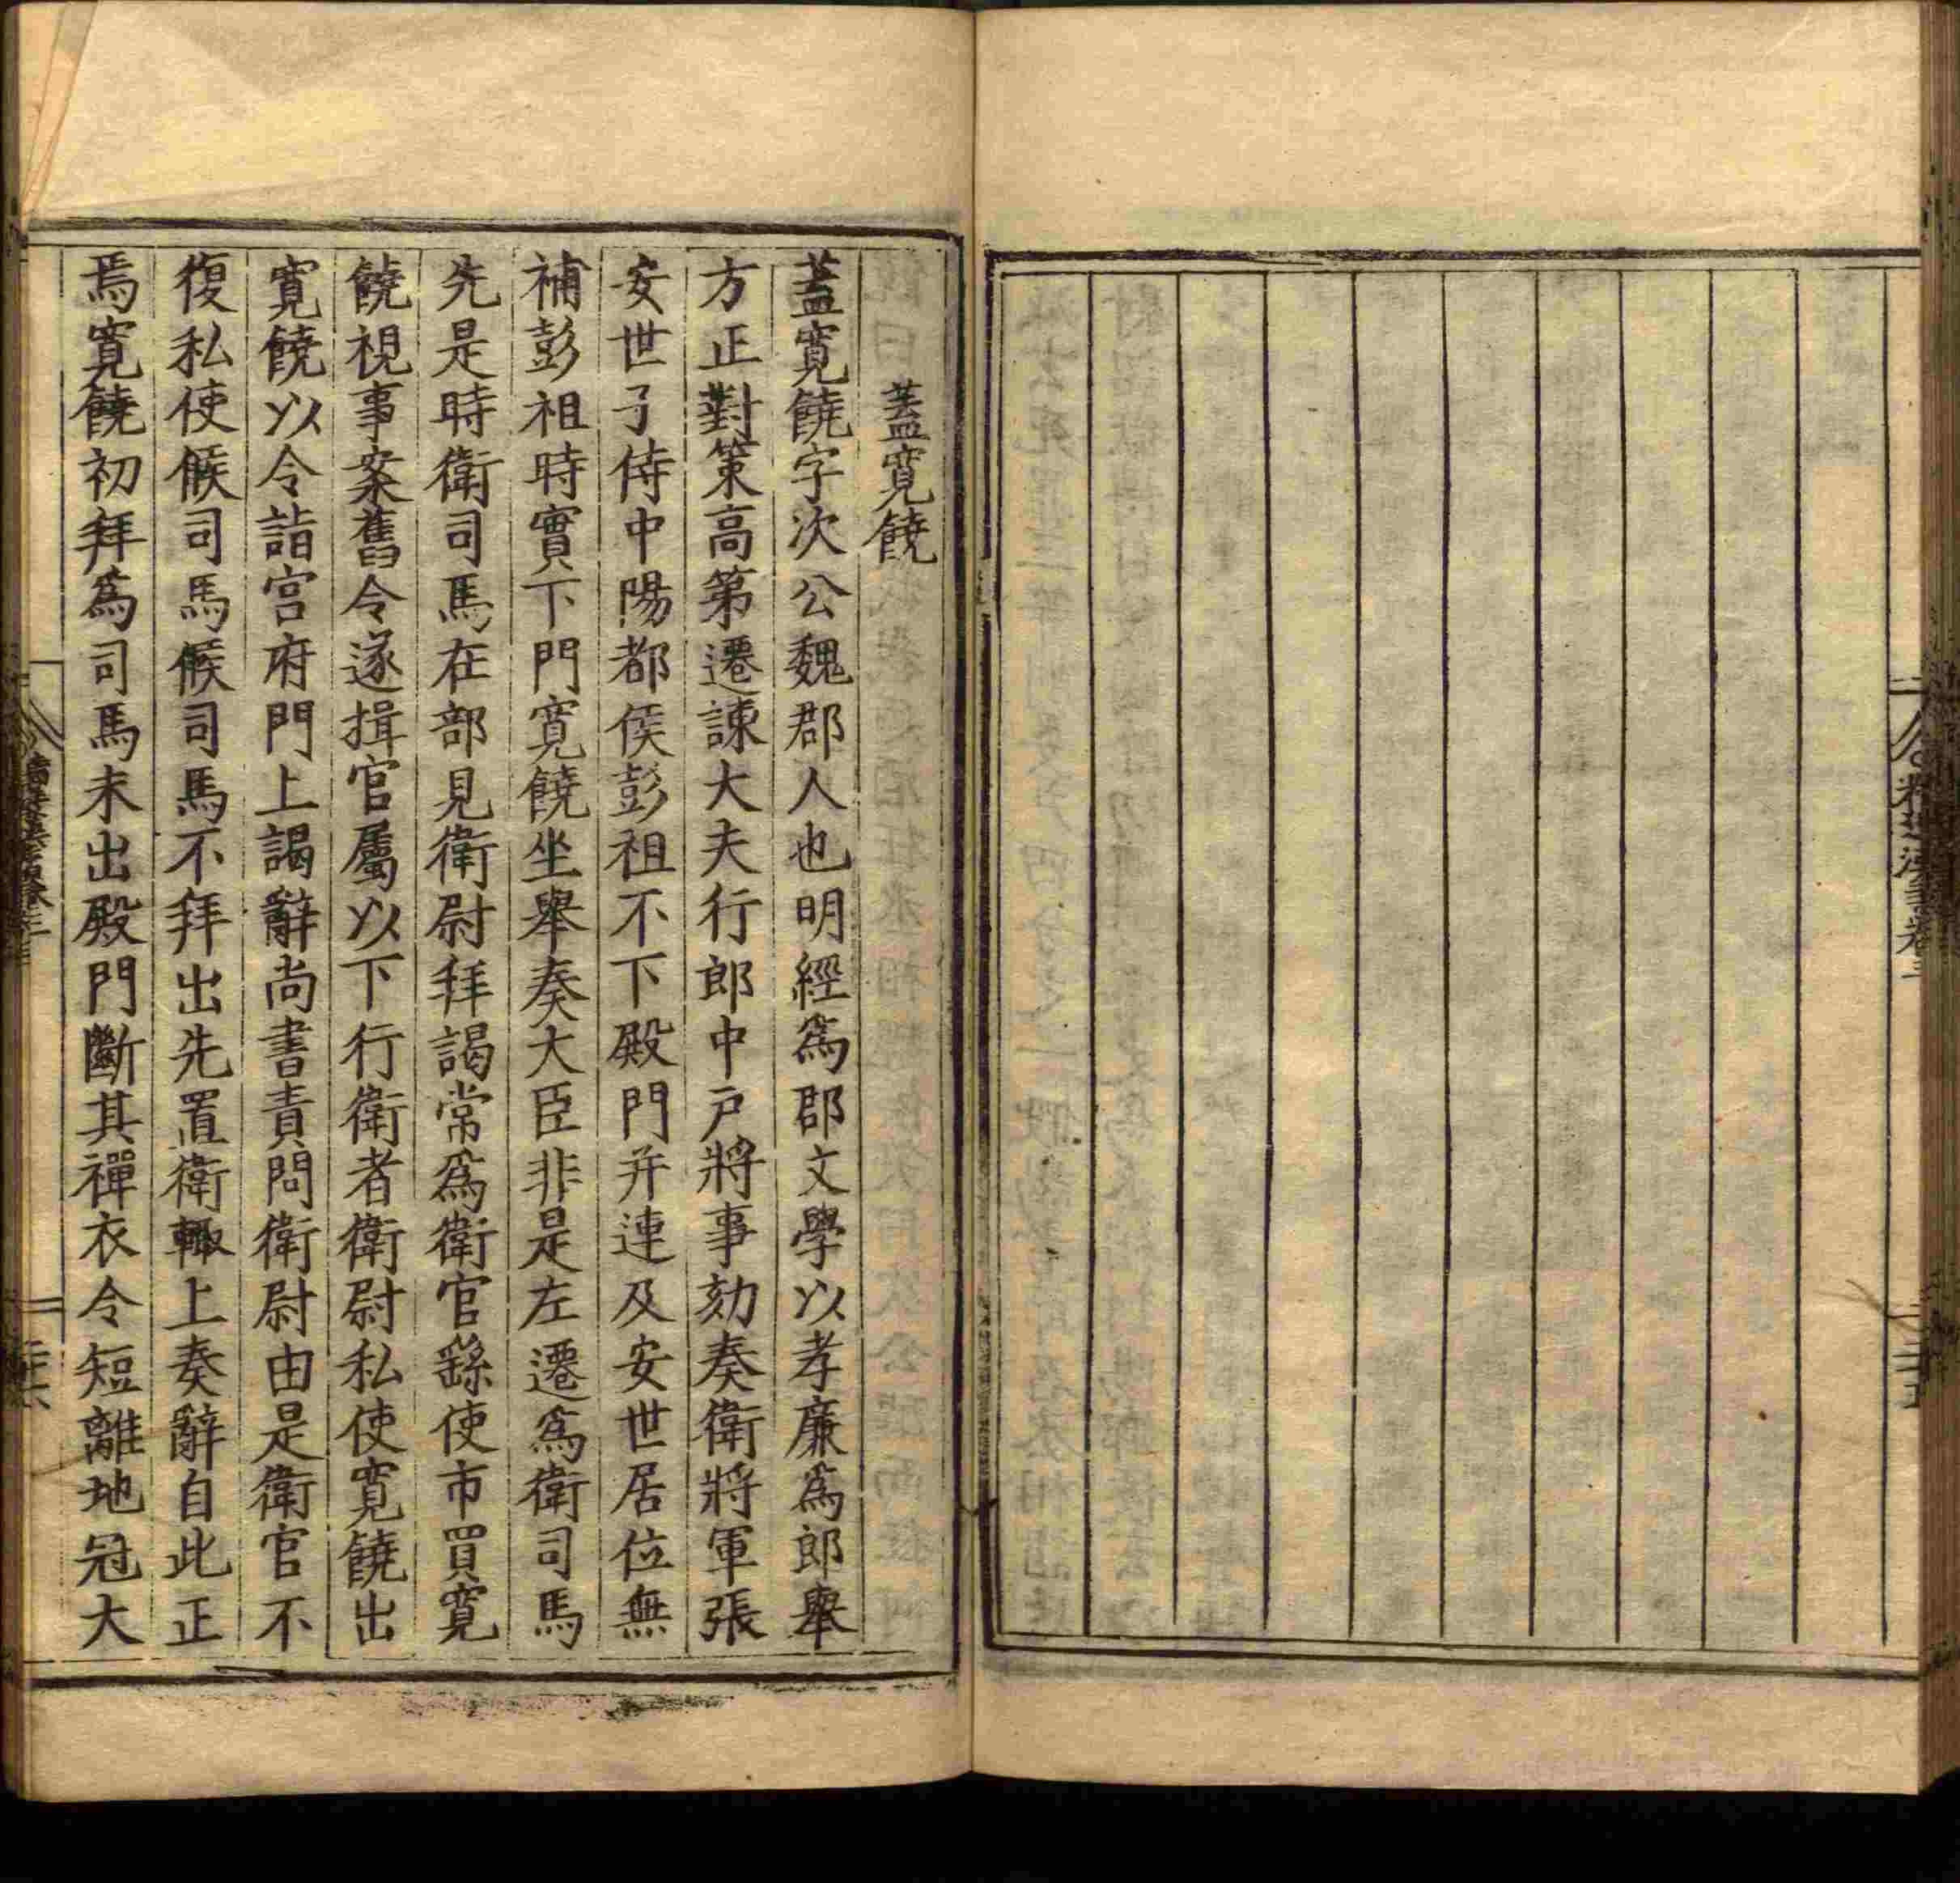 蓋寬饒
蓋寬饒字次公魏郡人也明經爲郡文學以孝廉爲郎舉
方正對策高第遷諫大夫行郎中戶將事劾奏衛將軍張
安世子侍中陽都侯彭祖不下殿門并連及安世居位無
補彭祖時實下門寬饒坐舉奏大臣非是左遷爲衛司馬
先是時衛司馬在部見衛尉拜謁常爲衛官繇使市買寬
饒視事案舊令遂揖官屬以下行衛者衛尉私使寬饒出
寬饒以令詣宮府門上謁辭尚書責問衛尉由是衛官不
復私使候司馬候司馬不拜出先置衛輒上奏辭自此正
焉寬饒初拜爲司馬未出殿門斷其襌衣令短離地冠大
二十六